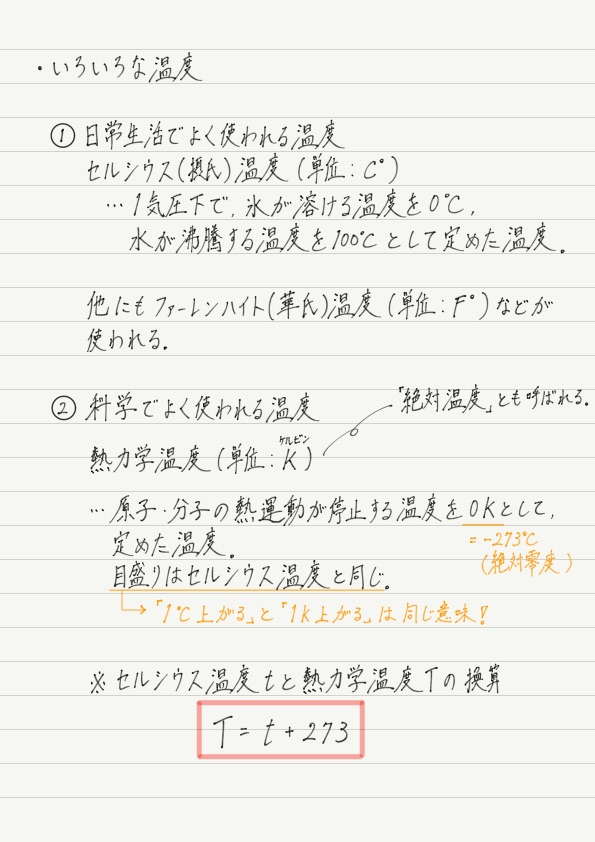 ・いろいろな温度
① 日常生活でよく使われる温度
セルシウス(摂氏)温度 (単位: C°)
… 1気圧下で、氷が溶ける温度を0℃、
水が沸騰する温度を100℃として定めた温度。
他にもファーレンハイト(華氏)温度 (単位: F°) などが
使われる。
② 科学でよく使われる温度
「絶対温度」とも呼ばれる。
ケルビン
熱力学温度 (単位: K)
… 原子・分子の熱運動が停止する温度を0Kとして、
定めた温度。
= -273℃
(絶対零度)
目盛りはセルシウス温度と同じ。
→「1℃上がる」と「1K上がる」は同じ意味!
※ セルシウス温度tと熱力学温度Tの換算
T = t + 273